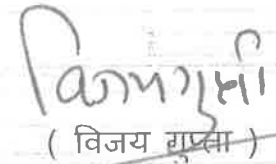 विजय गुप्ता
( विजय गुप्ता )